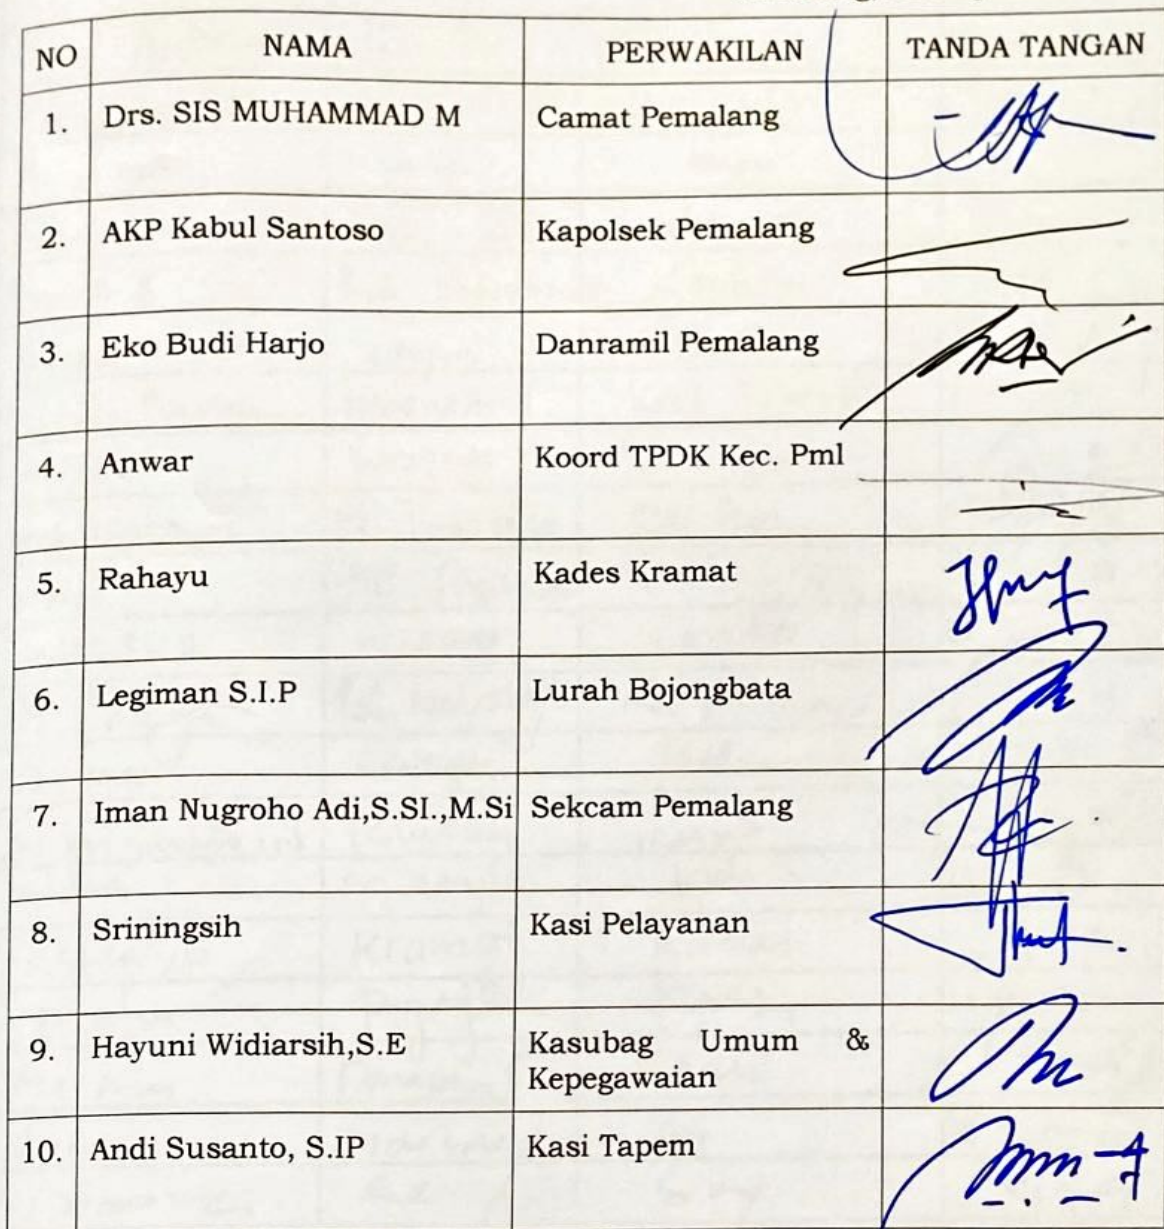 NO NAMA PERWAKILAN TANDA TANGAN
1. Drs. SIS MUHAMMAD M Camat Pemalang
2. AKP Kabul Santoso Kapolsek Pemalang
3. Eko Budi Harjo Danramil Pemalang
4. Anwar Koord TPDK Kec. Pml
5. Rahayu Kades Kramat
6. Legiman S.I.P Lurah Bojongbata
7. Iman Nugroho Adi,S.SI.,M.Si Sekcam Pemalang
8. Sriningsih Kasi Pelayanan
9. Hayuni Widiarsih,S.E Kasubag Umum &
Kepegawaian
10. Andi Susanto, S.IP Kasi Tapem